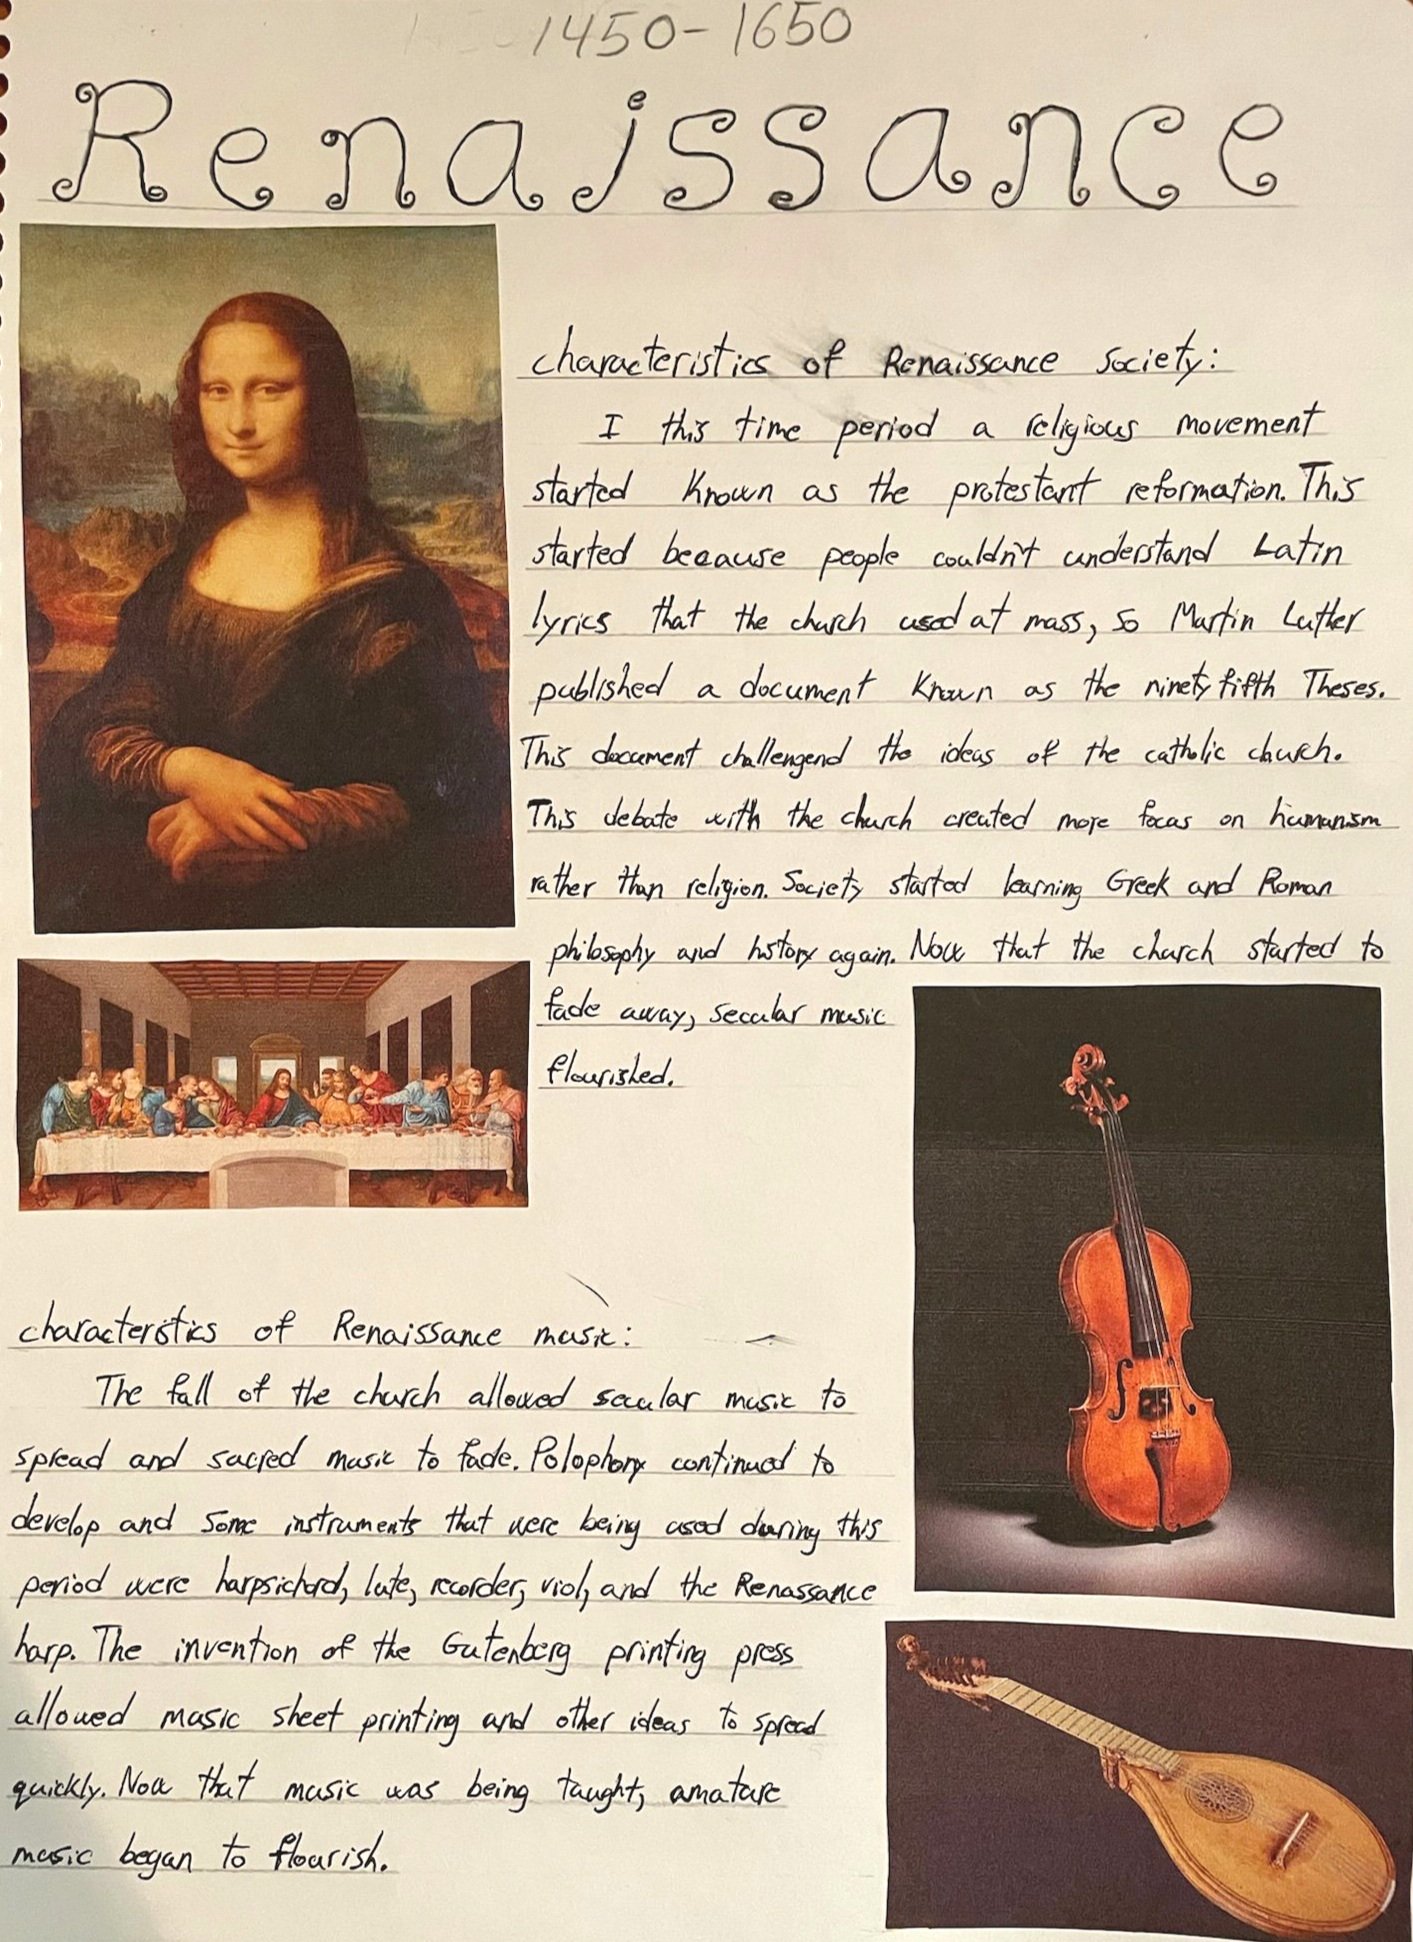 1450-1650
Renaissance
characteristics of Renaissance society:
I this time period a religious movement
started known as the protestant reformation. This
started because people couldn't understand Latin
lyrics that the church used at mass, so Martin Luther
published a document known as the ninety fifth Theses.
This document challengend the ideas of the catholic church.
This debate with the church created more focus on humanism
rather than religion. Society started learning Greek and Roman
philosophy and history again. Now that the church started to
fade away, secular music
flourished.
characteristics of Renaissance music:
The fall of the church allowed secular music to
spread and sacred music to fade. Polophony continued to
develop and some instruments that were being used during this
period were harpsichord, lute, recorder, viol, and the Renassance
harp. The invention of the Gutenberg printing press
allowed music sheet printing and other ideas to spread
quickly. Now that music was being taught, amature
music began to flourish.